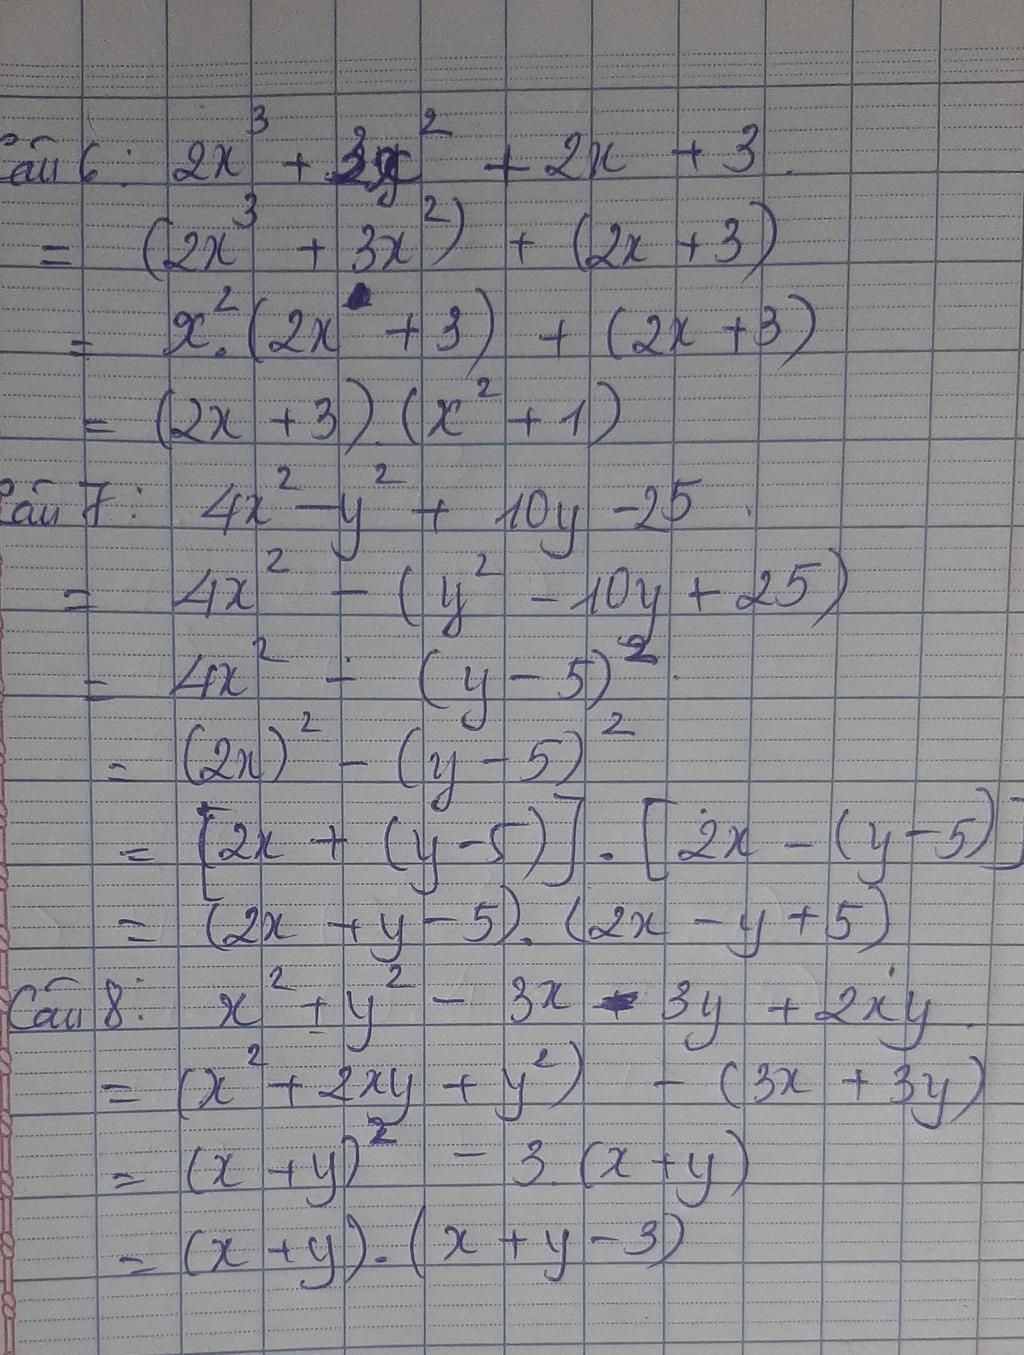 Câu 6: 2x³ + 3x² + 2x + 3
= (2x³ + 3x²) + (2x + 3)
= x².(2x + 3) + (2x + 3)
= (2x + 3).(x² + 1)
Câu 7: 4x² - y² + 10y - 25.
= 4x² - (y² - 10y + 25)
= 4x² - (y - 5)²
= (2x)² - (y - 5)²
= [2x + (y - 5)].[2x - (y - 5)]
= (2x + y - 5).(2x - y + 5)
Câu 8: x² + y² - 3x - 3y + 2xy.
= (x² + 2xy + y²) - (3x + 3y)
= (x + y)² - 3.(x + y)
= (x + y).(x + y - 3)